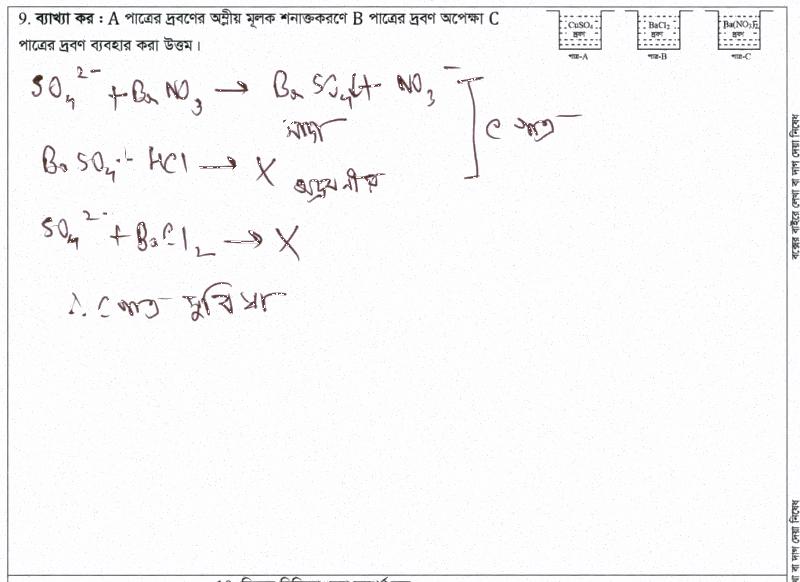 9. ব্যাখ্যা কর : A পাত্রের দ্রবণের অম্লীয় মূলক শনাক্তকরণে B পাত্রের দ্রবণ অপেক্ষা C
পাত্রের দ্রবণ ব্যবহার করা উত্তম।
CuSO₄ দ্রবণ
পাত্র-A
BaCl₂ দ্রবণ
পাত্র-B
Ba(NO₃)₂ দ্রবণ
পাত্র-C
SO₄²⁻ + BaNO₃ → BaSO₄↓ + NO₃⁻
সাদা
C পাত্র
BaSO₄ + HCl → X অদ্রবনীয়
SO₄²⁻ + BaCl₂ → X
∴ C পাত্র সুবিধা
বক্সের বাইরে লেখা বা দাগ দেয়া নিষেধ
বা দাগ দেয়া নিষেধ